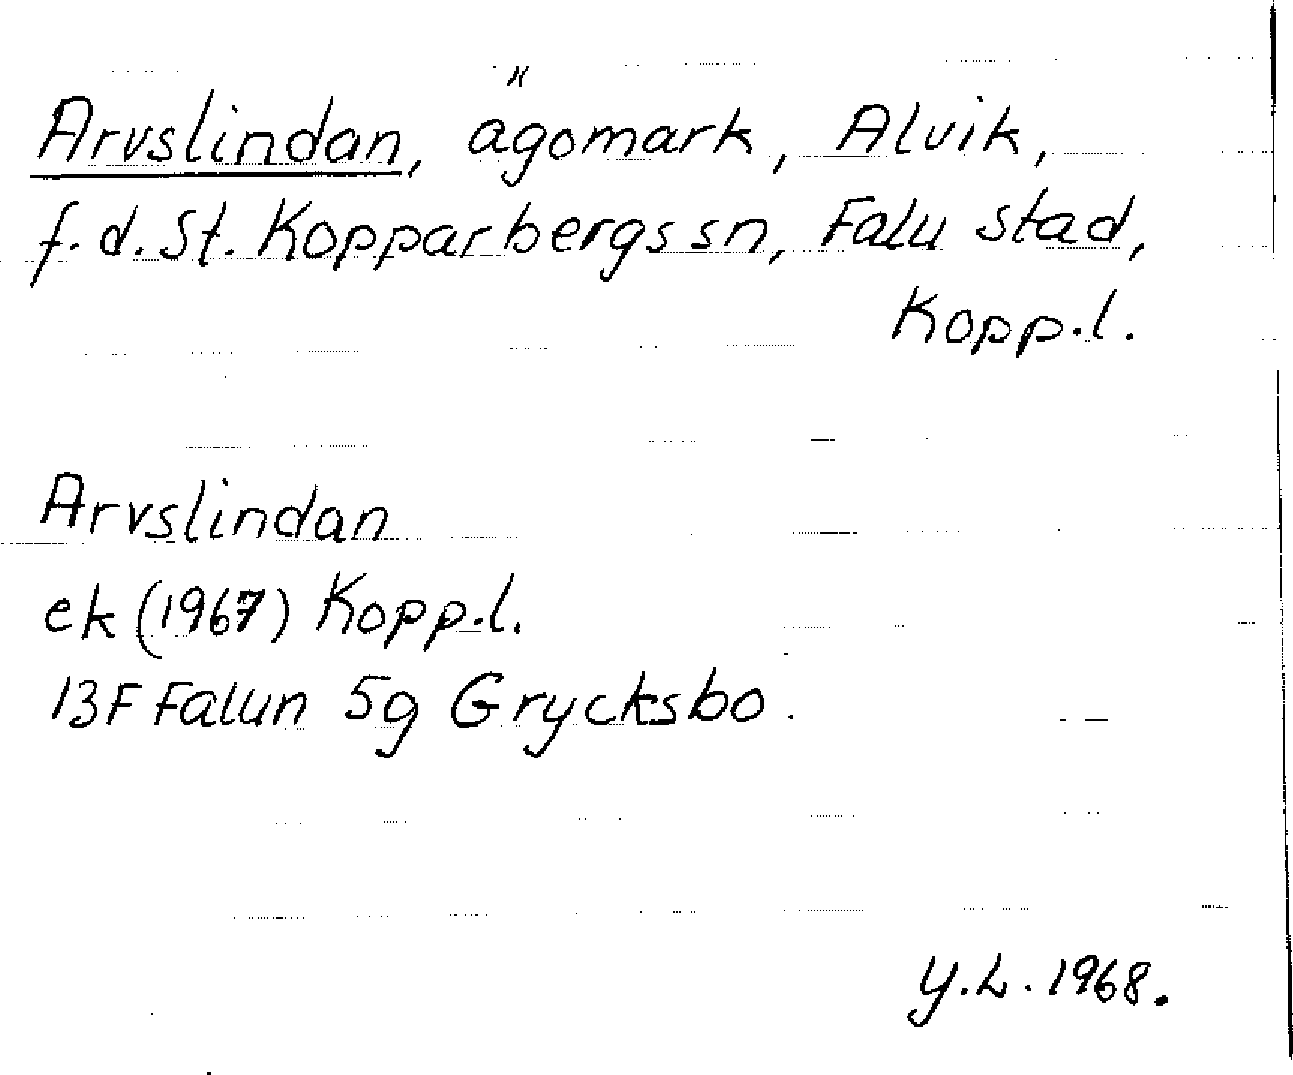 Arvslindan, ägomark, Alvik,
f.d. St. Kopparbergs sn, Falu stad,
Kopp.l.
Arvslindan
ek (1967) Kopp.l.
13F Falun 5g Grycksbo.
Y.L. 1968.